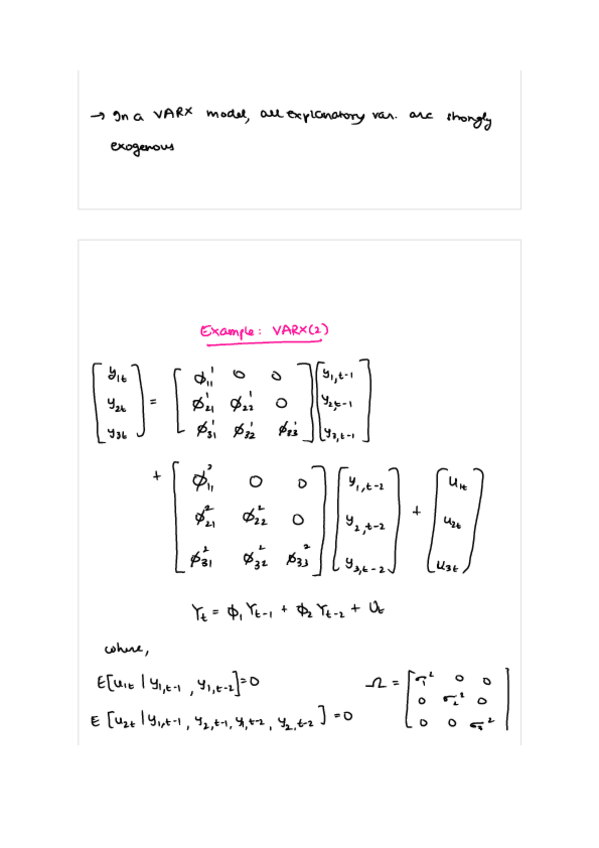 → In a VARX model, all explanatory var. are strongly
exogenous
Example: VARX(2)
[y₁ₜ y₂ₜ y₃ₜ]ᵀ = [φ₁₁¹ 0 0; φ₂₁¹ φ₂₂¹ 0; φ₃₁¹ φ₃₂¹ φ₃₃¹] [y₁,ₜ₋₁ y₂,ₜ₋₁ y₃,ₜ₋₁]ᵀ
+ [φ₁₁² 0 0; φ₂₁² φ₂₂² 0; φ₃₁² φ₃₂² φ₃₃²] [y₁,ₜ₋₂ y₂,ₜ₋₂ y₃,ₜ₋₂]ᵀ + [u₁ₜ u₂ₜ u₃ₜ]ᵀ
Yₜ = φ₁ Yₜ₋₁ + φ₂ Yₜ₋₂ + Uₜ
where,
E[u₁ₜ | y₁,ₜ₋₁, y₁,ₜ₋₂] = 0
E[u₂ₜ | y₁,ₜ₋₁, y₂,ₜ₋₁, y₁,ₜ₋₂, y₂,ₜ₋₂] = 0
Ω = [σ₁² 0 0; 0 σ₂² 0; 0 0 σ₃²]